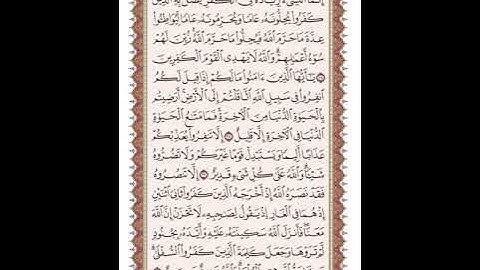 إِنَّمَا النَّسِيءُ زِيَادَةٌ فِي الْكُفْرِ يُضَلُّ بِهِ الَّذِينَ
كَفَرُوا يُحِلُّونَهُ عَامًا وَيُحَرِّمُونَهُ عَامًا لِيُوَاطِئُوا
عِدَّةَ مَا حَرَّمَ اللَّهُ فَيُحِلُّوا مَا حَرَّمَ اللَّهُ زُيِّنَ لَهُمْ
سُوءُ أَعْمَالِهِمْ وَاللَّهُ لَا يَهْدِي الْقَوْمَ الْكَافِرِينَ
يَا أَيُّهَا الَّذِينَ آمَنُوا مَا لَكُمْ إِذَا قِيلَ لَكُمُ
انْفِرُوا فِي سَبِيلِ اللَّهِ اثَّاقَلْتُمْ إِلَى الْأَرْضِ أَرَضِيتُمْ
بِالْحَيَاةِ الدُّنْيَا مِنَ الْآخِرَةِ فَمَا مَتَاعُ الْحَيَاةِ
الدُّنْيَا فِي الْآخِرَةِ إِلَّا قَلِيلٌ إِلَّا تَنْفِرُوا يُعَذِّبْكُمْ
عَذَابًا أَلِيمًا وَيَسْتَبْدِلْ قَوْمًا غَيْرَكُمْ وَلَا تَضُرُّوهُ
شَيْئًا وَاللَّهُ عَلَى كُلِّ شَيْءٍ قَدِيرٌ إِلَّا تَنْصُرُوهُ
فَقَدْ نَصَرَهُ اللَّهُ إِذْ أَخْرَجَهُ الَّذِينَ كَفَرُوا ثَانِيَ اثْنَيْنِ
إِذْ هُمَا فِي الْغَارِ إِذْ يَقُولُ لِصَاحِبِهِ لَا تَحْزَنْ إِنَّ اللَّهَ
مَعَنَا فَأَنْزَلَ اللَّهُ سَكِينَتَهُ عَلَيْهِ وَأَيَّدَهُ بِجُنُودٍ
لَمْ تَرَوْهَا وَجَعَلَ كَلِمَةَ الَّذِينَ كَفَرُوا السُّفْلَى